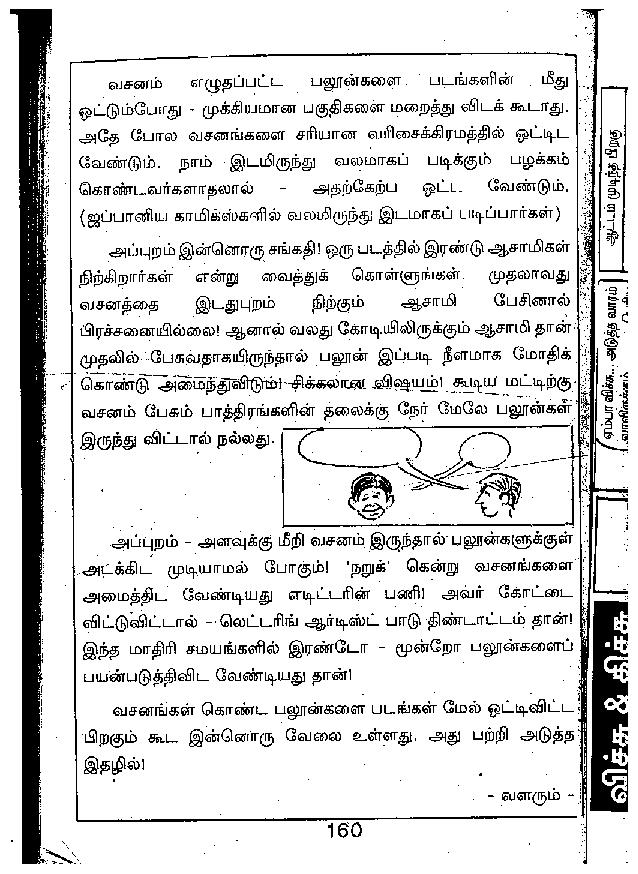 வசனம் எழுதப்பட்ட பலூன்களை படங்களின் மீது
ஒட்டும்போது - முக்கியமான பகுதிகளை மறைத்து விடக் கூடாது.
அதே போல வசனங்களை சரியான வரிசைக்கிரமத்தில் ஒட்டிட
வேண்டும். நாம் இடமிருந்து வலமாகப் படிக்கும் பழக்கம்
கொண்டவர்களாதலால் - அதற்கேற்ப ஒட்ட வேண்டும்.
(ஜப்பானிய காமிக்ஸ்களில் வலமிருந்து இடமாகப் படிப்பார்கள்)
அப்புறம் இன்னொரு சங்கதி! ஒரு படத்தில் இரண்டு ஆசாமிகள்
நிற்கிறார்கள் என்று வைத்துக் கொள்ளுங்கள். முதலாவது
வசனத்தை இடதுபுறம் நிற்கும் ஆசாமி பேசினால்
பிரச்சனையில்லை! ஆனால் வலது கோடியிலிருக்கும் ஆசாமி தான்
முதலில் பேசுவதாகயிருந்தால் பலூன் இப்படி நீளமாக மோதிக்
கொண்டு அமைந்துவிடும்! சிக்கலான விஷயம்! கூடிய மட்டிற்கு
வசனம் பேசும் பாத்திரங்களின் தலைக்கு நேர் மேலே பலூன்கள்
இருந்து விட்டால் நல்லது.
அப்புறம் - அளவுக்கு மீறி வசனம் இருந்தால் பலூன்களுக்குள்
அடக்கிட முடியாமல் போகும்! 'நறுக்' கென்று வசனங்களை
அமைத்திட வேண்டியது எடிட்டரின் பணி! அவர் கோட்டை
விட்டுவிட்டால் - லெட்டரிங் ஆர்டிஸ்ட் பாடு திண்டாட்டம் தான்!
இந்த மாதிரி சமயங்களில் இரண்டோ - மூன்றோ பலூன்களைப்
பயன்படுத்திவிட வேண்டியது தான்!
வசனங்கள் கொண்ட பலூன்களை படங்கள் மேல் ஒட்டிவிட்ட
பிறகும் கூட இன்னொரு வேலை உள்ளது. அது பற்றி அடுத்த
இதழில்!
- வளரும் -
160
ஆட்டம் முடிந்த பிறகு
எம்பாவிக்க... அடுத்த வாரம்
விச்சு & கிச்சு